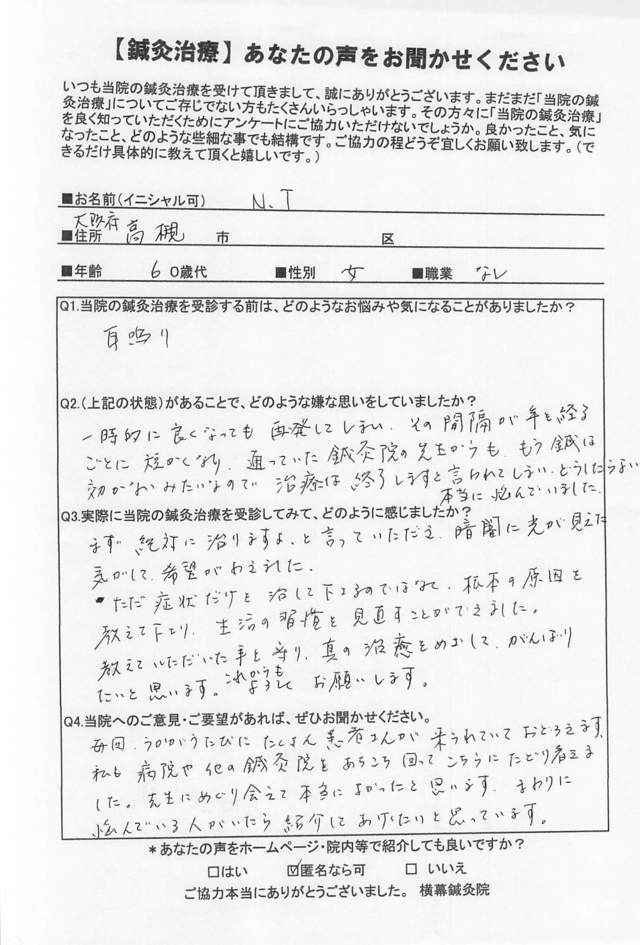 【鍼灸治療】あなたの声をお聞かせください
いつも当院の鍼灸治療を受けて頂きまして、誠にありがとうございます。まだまだ「当院の鍼
灸治療」についてご存じでない方もたくさんいらっしゃいます。その方々に「当院の鍼灸治療」
を良く知っていただくためにアンケートにご協力いただけないでしょうか。良かったこと、気に
なったこと、どのような些細な事でも結構です。ご協力の程どうぞ宜しくお願い致します。(で
きるだけ具体的に教えて頂くと嬉しいです。)
■お名前(イニシャル可) N.T
大阪府
■住所 高槻 市 区
■年齢 60歳代 ■性別 女 ■職業 なし
Q1.当院の鍼灸治療を受診する前は、どのようなお悩みや気になることがありましたか?
耳鳴り
Q2.(上記の状態)があることで、どのような嫌な思いをしていましたか?
一時的に良くなっても再発してしまい、その間隔が年を経る
ごとに短かくなり、通っていた鍼灸院の先生からも、もう鍼は
効かないみたいなので 治療は終了しますと言われてしまい、どうしたらよいか
本当に悩んでいました。
Q3.実際に当院の鍼灸治療を受診してみて、どのように感じましたか?
まず 絶対に治りますよ、と言っていただき、暗闇に光が見えた
気がして、希望がわきました。
・ただ症状だけを治して下さるのではなく、根本の原因を
教えて下さり、生活の習慣を見直すことができました。
教えていただいた事を守り、真の治癒をめざして、がんばり
たいと思います。これからもよろしくお願いします。
Q4.当院へのご意見・ご要望があれば、ぜひお聞かせください。
毎回、うかがうたびにたくさん患者さんが来られていておどろきます。
私も病院や他の鍼灸院をあちこち回ってこちらにたどり着きま
した。先生にめぐり会えて本当によかったと思います。まわりに
悩んでいる人がいたら紹介してあげたいと思っています。
*あなたの声をホームページ・院内等で紹介しても良いですか?
□はい ☑匿名なら可 □ いいえ
ご協力本当にありがとうございました。 横幕鍼灸院